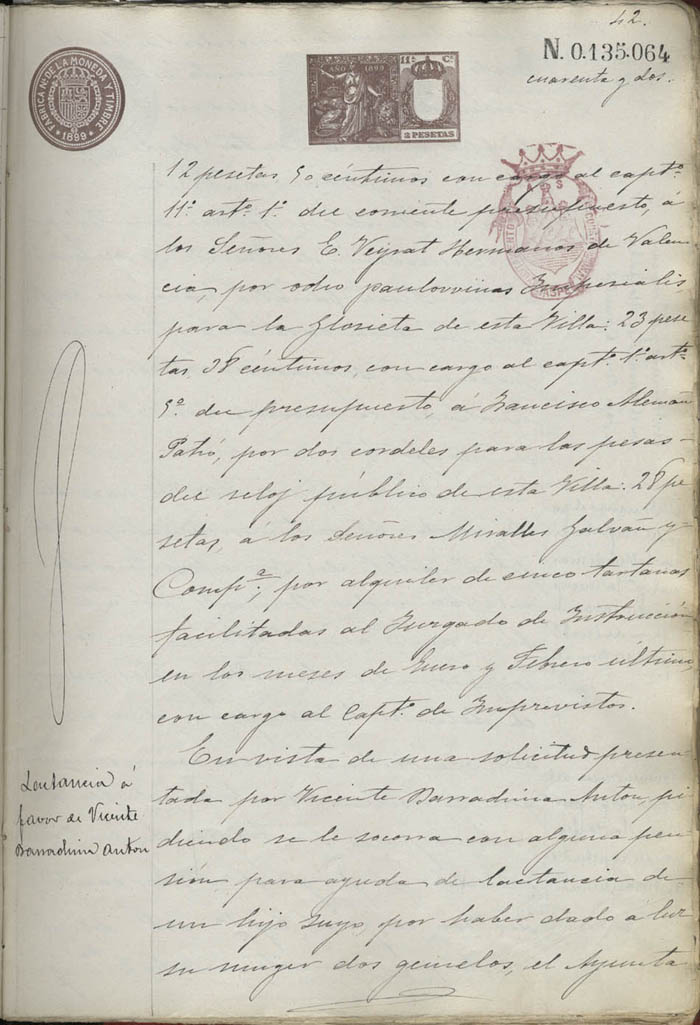 42.
N. 0.135.064
cuarenta y dos.
FABRICA NAL. DE LA MONEDA Y TIMBRE
1899
AÑO 1899
11ª Cª
2 PESETAS
12 pesetas 50 céntimos con cargo al captº
11º artº 1º del corriente presupuesto, á
los Señores E. Veyrat Hermanos de Valen
cia, por ocho paulovinias Imperialis
para la glorieta de esta Villa: 23 pese
tas 38 céntimos, con cargo al captº 1º artº
5º del presupuesto, á Francisco Alemañ
Patró, por dos cordeles para las pesas
del reloj público de esta Villa: 28 pe
setas, á los Señores Miralles Galvañ y
Compª; por alquiler de cinco tartanas
facilitadas al Juzgado de Instrucción
en los meses de Enero y Febrero último,
con cargo al Captº de Imprevistos.
En vista de una solicitud presen
tada por Vicente Barrachina Anton, pi
diendo se le socorra con alguna pen
sión para ayuda de lactancia de
un hijo suyo, por haber dado á luz
su muger dos gemelos, el Ayunta
Lactancia á
favor de Vicente
Barrachina Anton